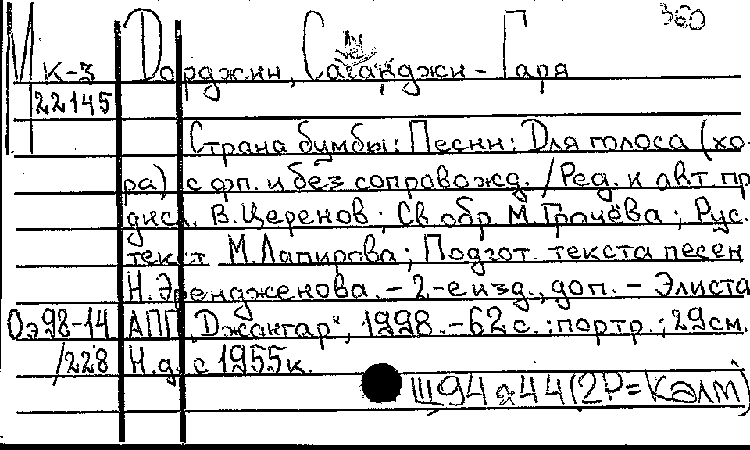 360
М к-3 Дорджин, Саганджи-Гаря
22145
Страна бумбы: Песни: Для голоса (хо-
ра) с фп. и без сопровожд. / Ред. и авт. пр
дисл. В. Церенов; Св обр М. Грачёва; Рус.
текст М. Лапирова; Подгот. текста песен
Н. Эрендженова. - 2-е изд., доп. - Элиста
Оэ98-14 АПП „Джангар“, 1998. - 62 с.: портр.; 29см.
/228 Н.д. с 1955к.
Щ94я44(2Р=Калм)